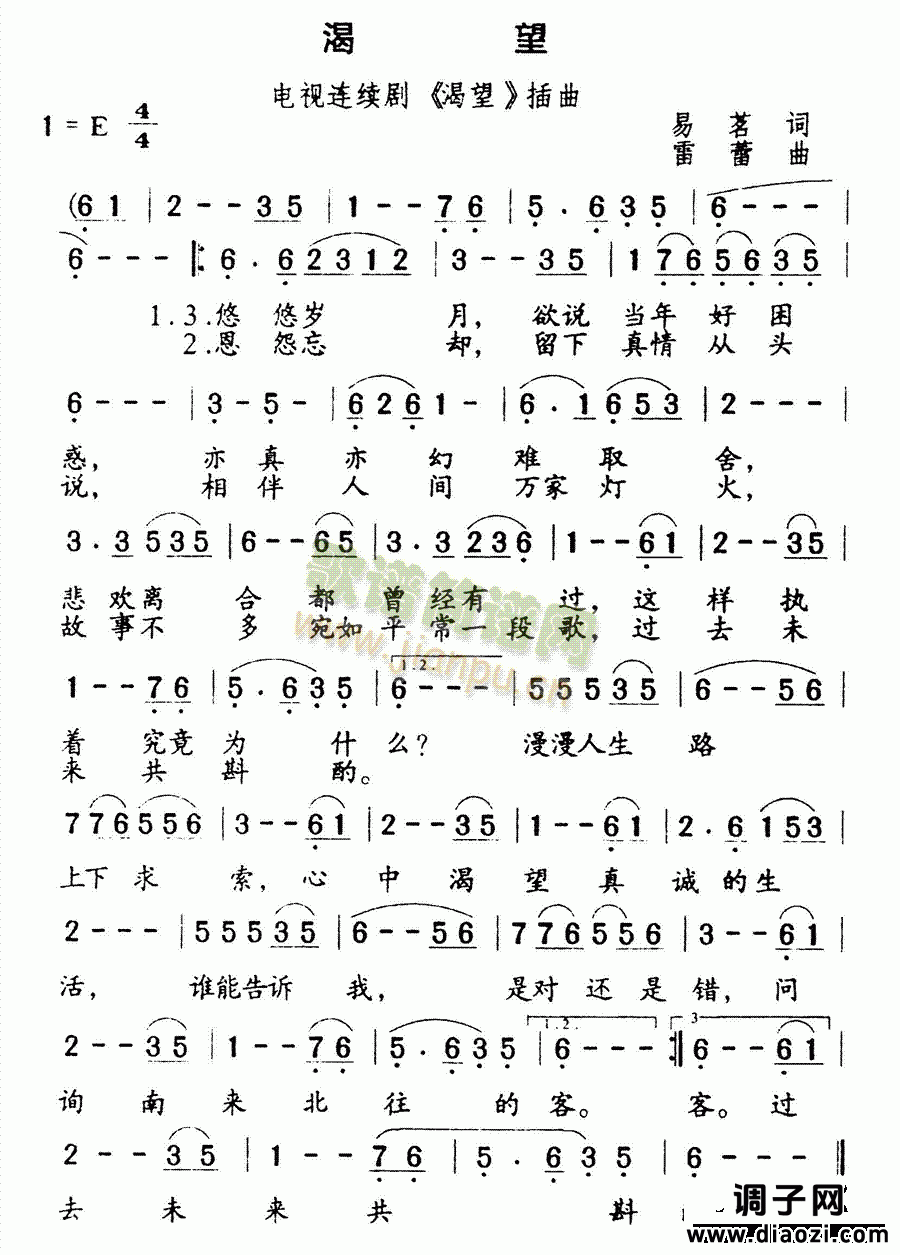 渴 望
电视连续剧《渴望》插曲
1 = E 4/4
易 茗 词
雷 蕾 曲
(6 1 | 2 - - 3 5 | 1 - - 7 6 | 5 . 6 3 5 | 6 - - - |
6 - - - |: 6 . 6 2 3 1 2 | 3 - - 3 5 | 1 7 6 5 6 3 5 |
1.3.悠 悠岁 月, 欲说 当年 好 困
2.恩 怨忘 却, 留下 真情 从 头
6 - - - | 3 - 5 - | 6 2 6 1 - | 6 . 1 6 5 3 | 2 - - - |
惑, 亦 真 亦 幻 难 取 舍,
说, 相 伴 人 间 万家 灯 火,
3 . 3 5 3 5 | 6 - - 6 5 | 3 . 3 2 3 6 | 1 - - 6 1 | 2 - - 3 5 |
悲 欢离 合 都 曾 经有 过, 这 样 执
故 事不 多 宛如 平 常一 段 歌, 过 去 未
1 - - 7 6 | 5 . 6 3 5 | 1.2. 6 - - - | 5 5 5 3 5 | 6 - - 5 6 |
着 究竟 为 什 么? 漫漫人生 路
来 共 斟 酌。
7 7 6 5 5 6 | 3 - - 6 1 | 2 - - 3 5 | 1 - - 6 1 | 2 . 6 1 5 3 |
上下 求 索, 心 中 渴 望 真 诚 的 生
2 - - - | 5 5 5 3 5 | 6 - - 5 6 | 7 7 6 5 5 6 | 3 - - 6 1 |
活, 谁能告诉 我, 是对 还 是 错, 问
2 - - 3 5 | 1 - - 7 6 | 5 . 6 3 5 | 1.2. 6 - - - :| 3 6 - - 6 1 |
询 南 来 北 往 的 客。 客。 过
2 - - 3 5 | 1 - - 7 6 | 5 . 6 3 5 | 6 - - - ‖
去 未 来 共 斟
歌谱简谱网
www.jianpu.cn
调子网
www.diaozi.com